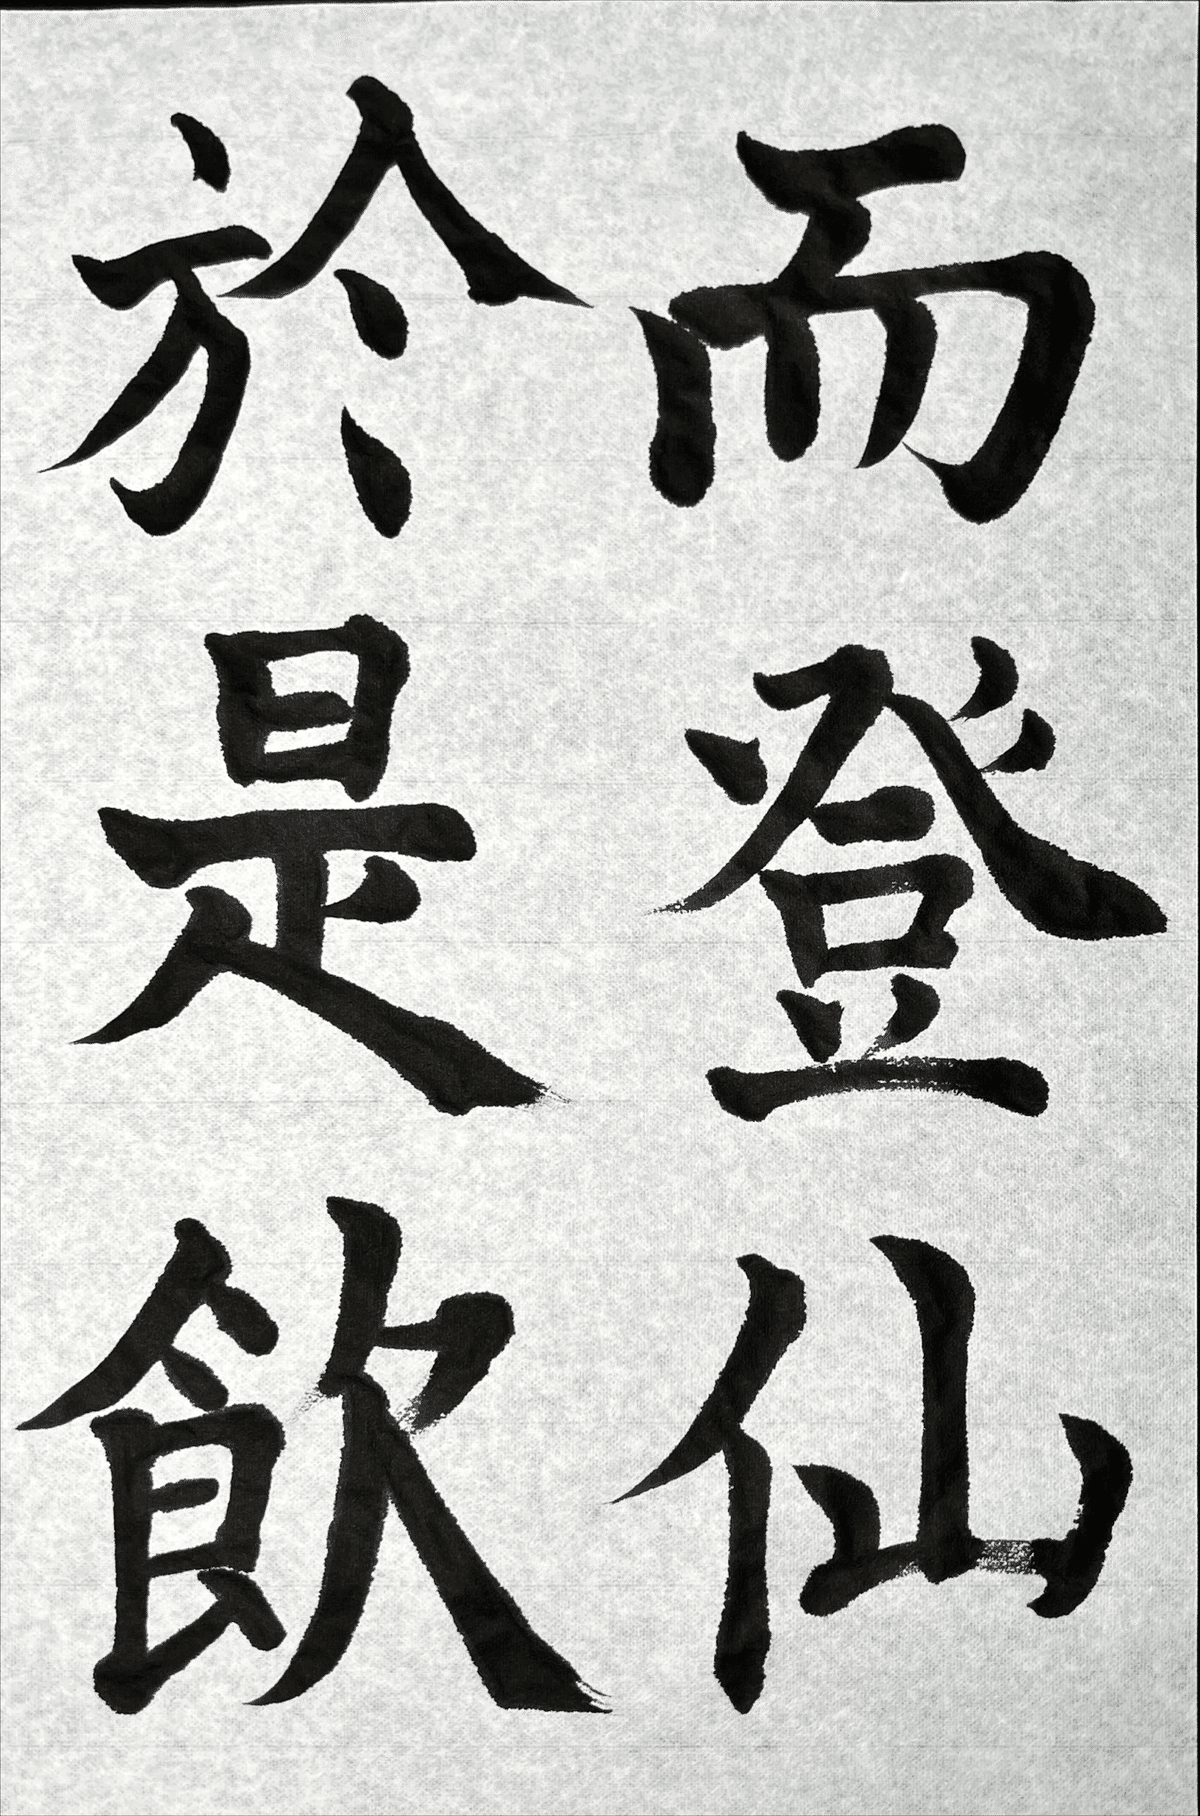 而登仙
於是飲